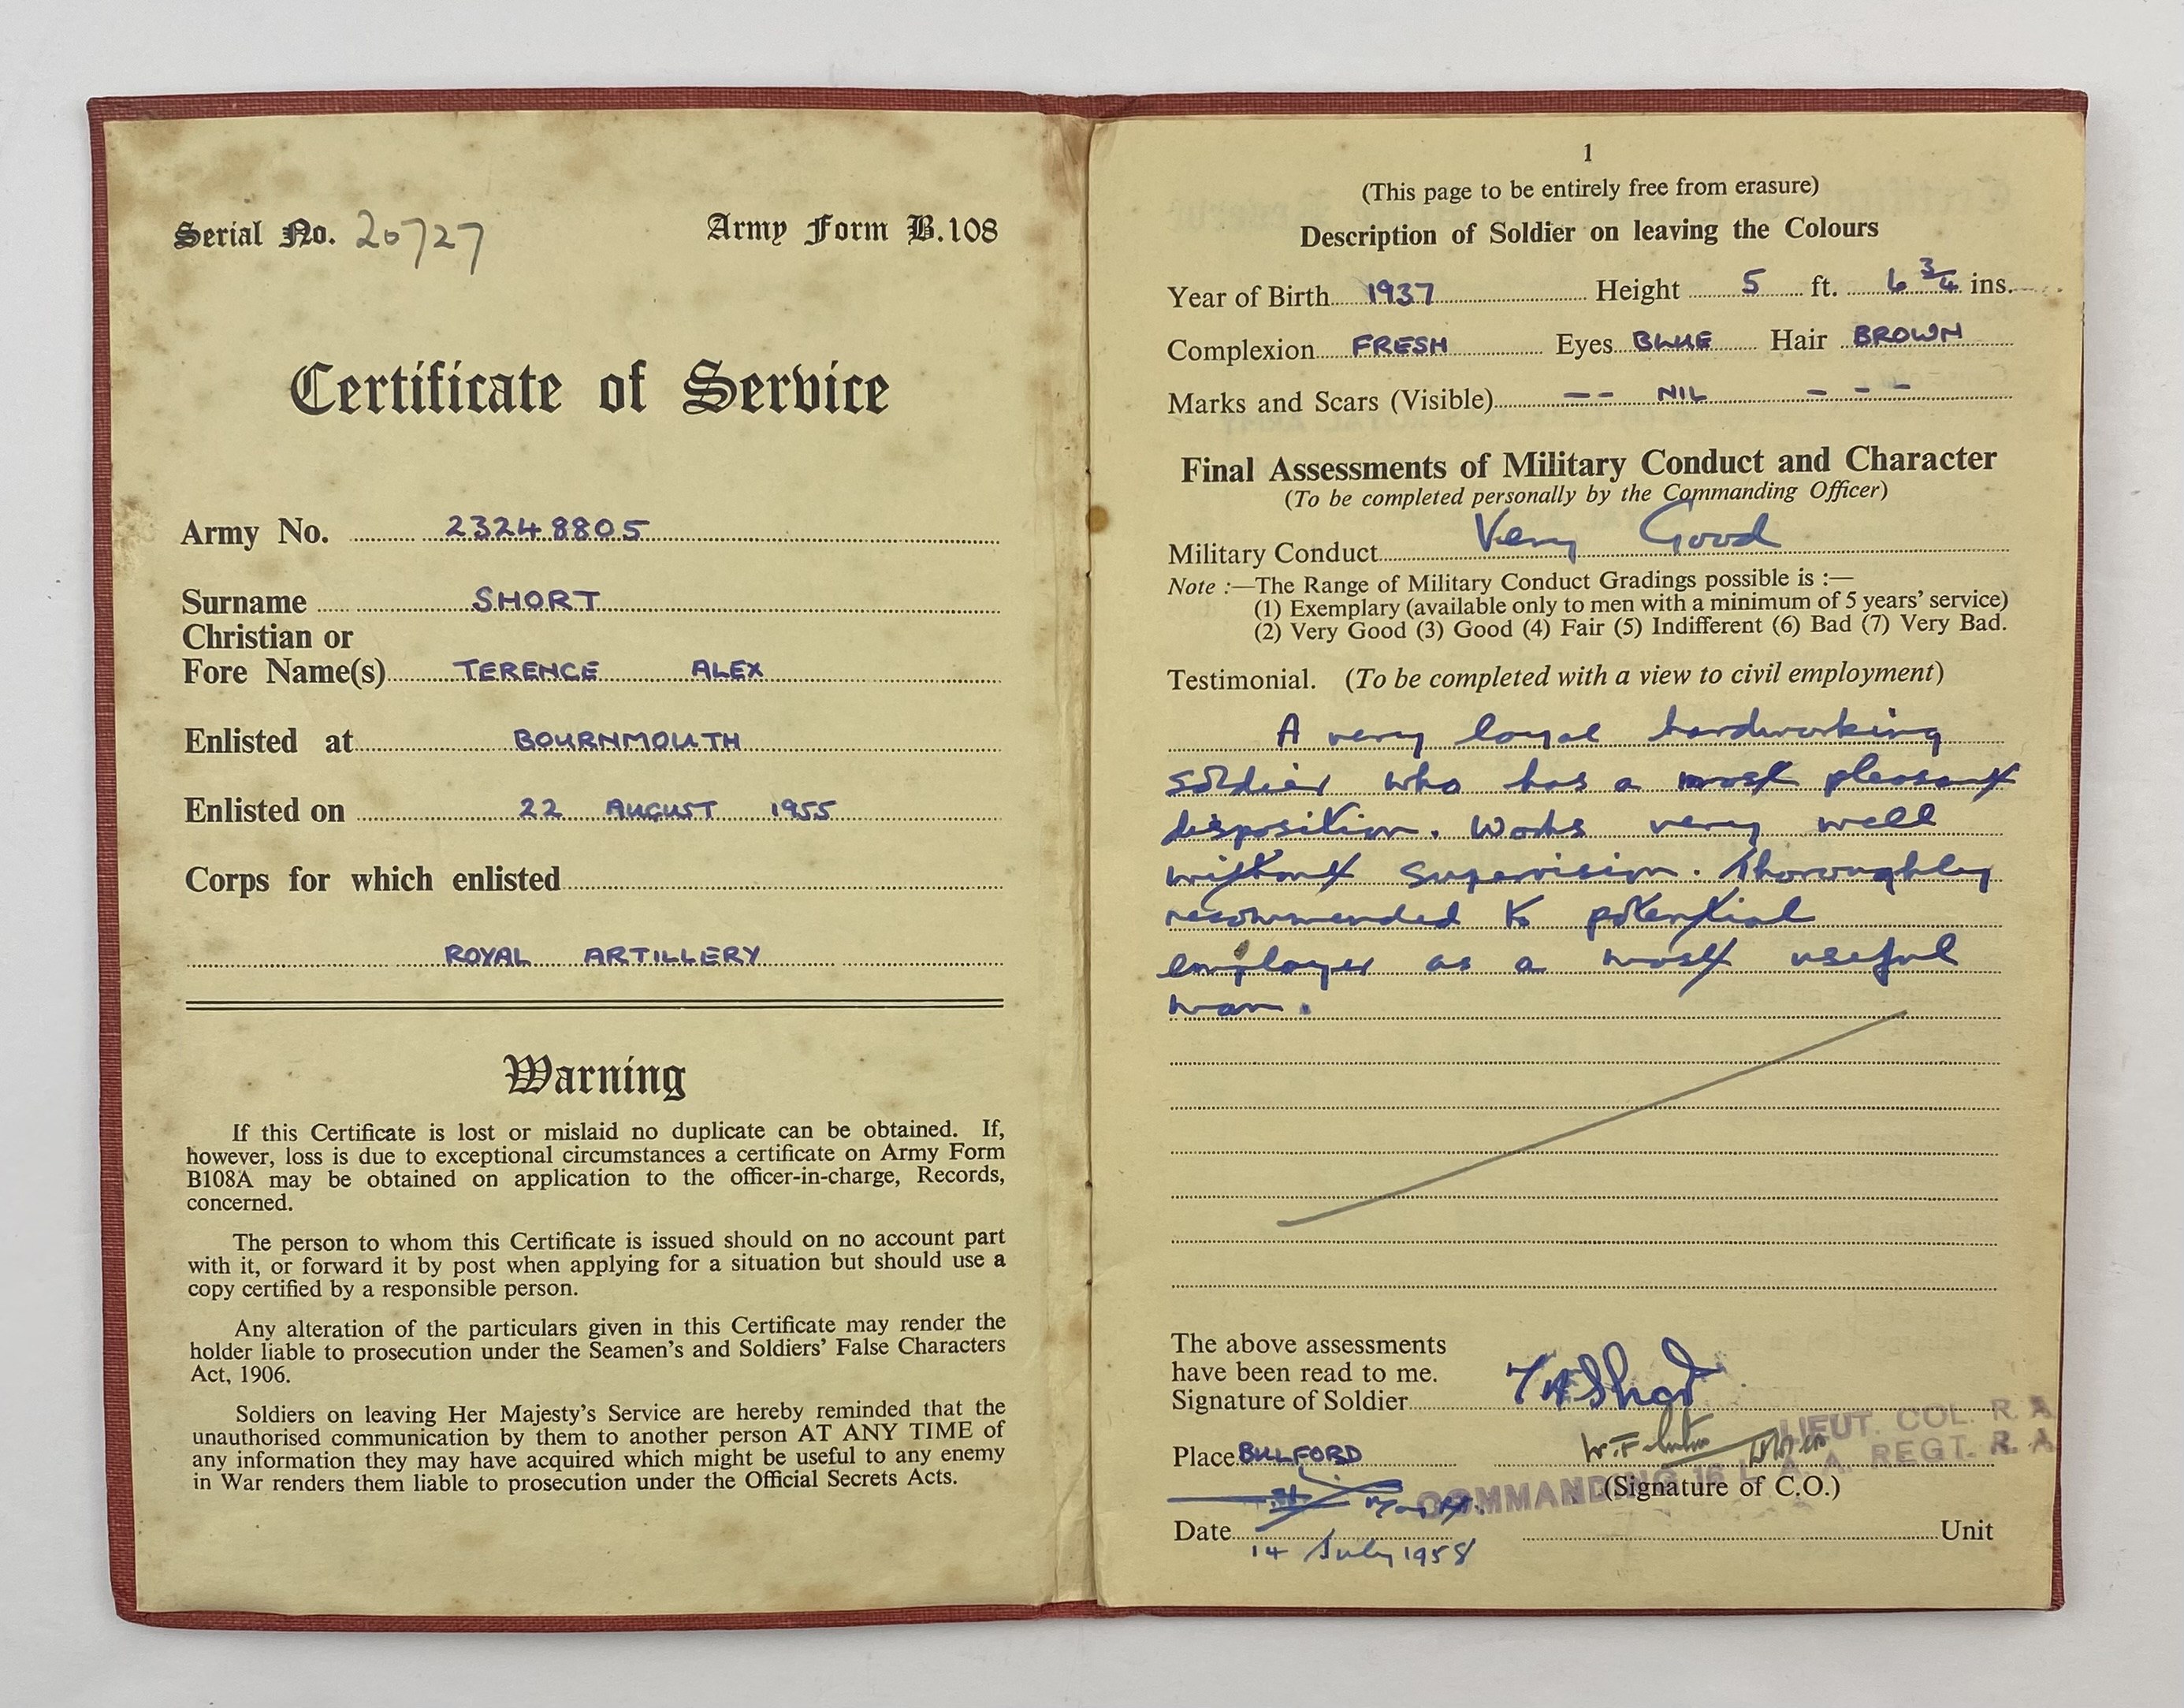 Serial No. 20727 Army Form B.108
Certificate of Service
Army No. 23248805
Surname SHORT
Christian or
Fore Name(s) TERENCE ALEX
Enlisted at BOURNMOUTH
Enlisted on 22 AUGUST 1955
Corps for which enlisted
ROYAL ARTILLERY
Warning
If this Certificate is lost or mislaid no duplicate can be obtained. If,
however, loss is due to exceptional circumstances a certificate on Army Form
B108A may be obtained on application to the officer-in-charge, Records,
concerned.
The person to whom this Certificate is issued should on no account part
with it, or forward it by post when applying for a situation but should use a
copy certified by a responsible person.
Any alteration of the particulars given in this Certificate may render the
holder liable to prosecution under the Seamen's and Soldiers' False Characters
Act, 1906.
Soldiers on leaving Her Majesty's Service are hereby reminded that the
unauthorised communication by them to another person AT ANY TIME of
any information they may have acquired which might be useful to any enemy
in War renders them liable to prosecution under the Official Secrets Acts.
1
(This page to be entirely free from erasure)
Description of Soldier on leaving the Colours
Year of Birth 1937 Height 5 ft. 6 3/4 ins.
Complexion FRESH Eyes BLUE Hair BROWN
Marks and Scars (Visible) -- NIL ---
Final Assessments of Military Conduct and Character
(To be completed personally by the Commanding Officer)
Military Conduct Very Good
Note :—The Range of Military Conduct Gradings possible is :—
(1) Exemplary (available only to men with a minimum of 5 years' service)
(2) Very Good (3) Good (4) Fair (5) Indifferent (6) Bad (7) Very Bad.
Testimonial. (To be completed with a view to civil employment)
A very loyal hardworking
soldier who has a most pleasant
disposition. Works very well
without supervision. Thoroughly
recommended to potential
employer as a most useful
man.
The above assessments
have been read to me.
Signature of Soldier T A Short
LIEUT. COL. R. A
Place BULFORD
COMMANDING 16 L. A. A. REGT. R. A
(Signature of C.O.)
Date 14 July 1958 Unit